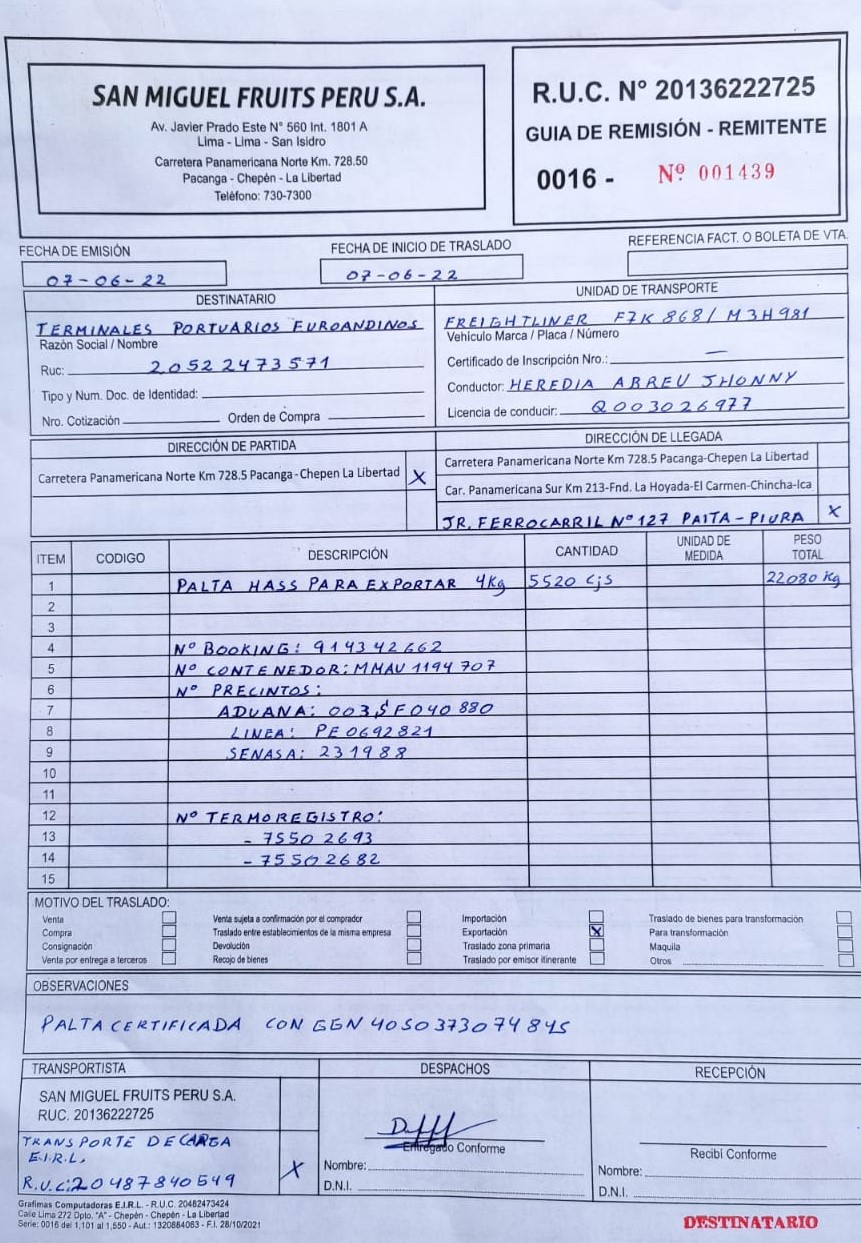 SAN MIGUEL FRUITS PERU S.A.
Av. Javier Prado Este N° 560 Int. 1801 A
Lima - Lima - San Isidro
Carretera Panamericana Norte Km. 728.50
Pacanga - Chepén - La Libertad
Teléfono: 730-7300
R.U.C. N° 20136222725
GUIA DE REMISIÓN - REMITENTE
0016 - Nº 001439
FECHA DE EMISIÓN
07-06-22
FECHA DE INICIO DE TRASLADO
07-06-22
REFERENCIA FACT. O BOLETA DE VTA.
DESTINATARIO
TERMINALES PORTUARIOS EUROANDINOS
Razón Social / Nombre
Ruc: 20522473571
Tipo y Num. Doc. de Identidad:
Nro. Cotización Orden de Compra
UNIDAD DE TRANSPORTE
FREIGHTLINER F7K 868/ M3H981
Vehículo Marca / Placa / Número
Certificado de Inscripción Nro.: —
Conductor: HEREDIA ABREU JHONNY
Licencia de conducir: Q003026977
DIRECCIÓN DE PARTIDA
Carretera Panamericana Norte Km 728.5 Pacanga-Chepen La Libertad X
DIRECCIÓN DE LLEGADA
Carretera Panamericana Norte Km 728.5 Pacanga-Chepen La Libertad
Car. Panamericana Sur Km 213-Fnd. La Hoyada-El Carmen-Chincha-Ica
JR. FERROCARRIL N° 127 PAITA - PIURA X
ITEM CODIGO DESCRIPCIÓN CANTIDAD UNIDAD DE MEDIDA PESO TOTAL
1 PALTA HASS PARA EXPORTAR 4Kg 5520 Cjs 22080 Kg
2
3
4 N° BOOKING: 914342662
5 N° CONTENEDOR: MMAU 1194707
6 N° PRECINTOS:
7 ADUANA: 003SF040880
8 LINEA: PE0692821
9 SENASA: 231988
10
11
12 N° TERMOREGISTRO:
13 - 75502693
14 - 75502682
15
MOTIVO DEL TRASLADO:
Venta Venta sujeta a confirmación por el comprador Importación Traslado de bienes para transformación
Compra Traslado entre establecimientos de la misma empresa Exportación X Para transformación
Consignación Devolución Traslado zona primaria Maquila
Venta por entrega a terceros Recojo de bienes Traslado por emisor itinerante Otros
OBSERVACIONES
PALTA CERTIFICADA CON GGN 4050373074845
TRANSPORTISTA
SAN MIGUEL FRUITS PERU S.A.
RUC. 20136222725
TRANSPORTE DE CARGA
E.I.R.L.
R.U.C: 20487840549 X
DESPACHOS
Entregado Conforme
Nombre:
D.N.I.
RECEPCIÓN
Recibí Conforme
Nombre:
D.N.I.
Grafimas Computadoras E.I.R.L. - R.U.C. 20482473424
Calle Lima 272 Dpto. "A" - Chepén - Chepén - La Libertad
Serie: 0016 del 1,101 al 1,550 - Aut.: 1320884083 - F.I. 28/10/2021
DESTINATARIO